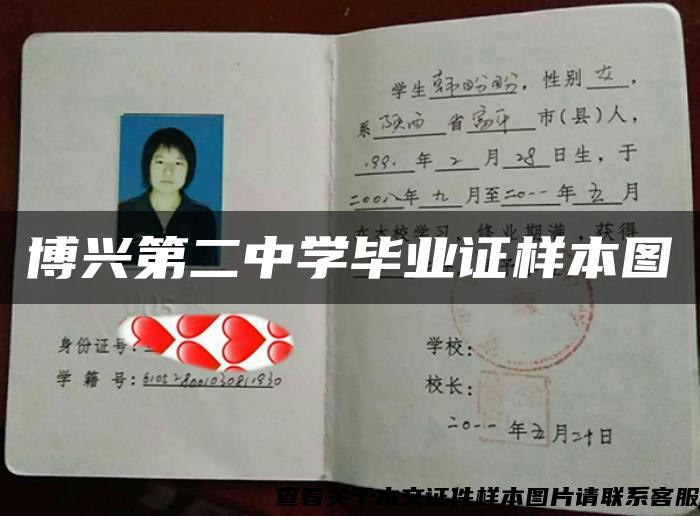 学生韩盼盼，性别女，
系陕西省富平市(县)人，
1991年2月28日生，于
二00八年九月至二0一一年五月
在本校学习，修业期满，获得
博兴第二中学毕业证样本图
身份证号：
学籍号：
学校：
校长：
二0一一年五月二十日
查看关于本文证件样本图片请联系客服